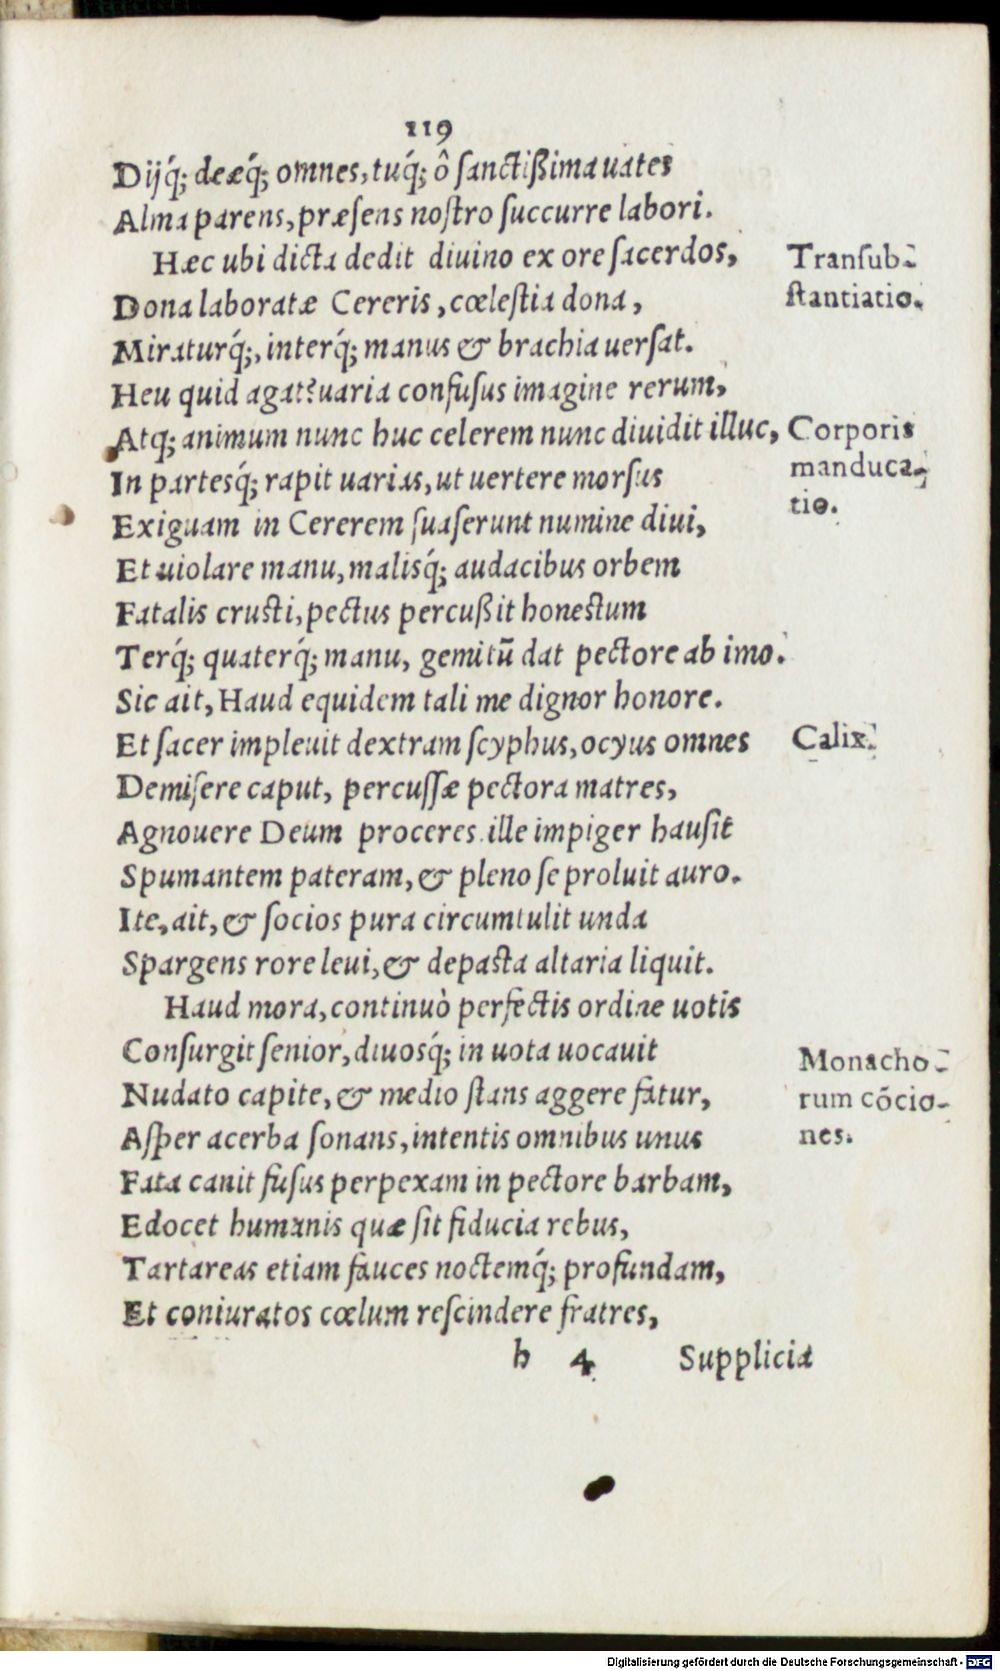 119
Dijq́; deæq́; omnes, tuq́; ô ſanctißima uates
Alma parens, præſens noſtro ſuccurre labori.
Hæc ubi dicta dedit diuino ex ore ſacerdos,
Transub-
ſtantiatio.
Dona laboratæ Cereris, cœleſtia dona,
Miraturq́;, interq́; manus & brachia uerſat.
Heu quid agat? uaria confuſus imagine rerum,
Atq; animum nunc huc celerem nunc diuidit illuc,
Corporis
manduca-
tio.
In partesq́; rapit uarias, ut uertere morſus
Exiguam in Cererem ſuaſerunt numine diui,
Et uiolare manu, malisq́; audacibus orbem
Fatalis cruſti, pectus percußit honeſtum
Terq́; quaterq́; manu, gemitū dat pectore ab imo.
Sic ait, Haud equidem tali me dignor honore.
Et ſacer impleuit dextram ſcyphus, ocyus omnes
Calix.
Demiſere caput, percuſſæ pectora matres,
Agnouere Deum proceres. ille impiger hauſit
Spumantem pateram, & pleno ſe proluit auro.
Ite, ait, & ſocios pura circumtulit unda
Spargens rore leui, & depaſta altaria liquit.
Haud mora, continuò perfectis ordine uotis
Conſurgit ſenior, diuosq́; in uota uocauit
Monacho-
rum cōcio-
nes.
Nudato capite, & medio ſtans aggere fatur,
Aſper acerba ſonans, intentis omnibus unus
Fata canit fuſus perpexam in pectore barbam,
Edocet humanis quæ ſit fiducia rebus,
Tartareas etiam fauces noctemq́; profundam,
Et coniuratos cœlum reſcindere fratres,
h 4 Supplicia
Digitalisierung gefördert durch die Deutsche Forschungsgemeinschaft - DFG